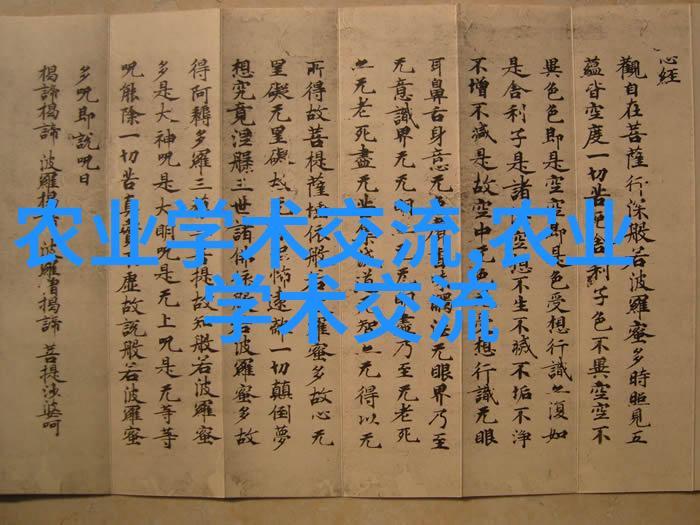 心经
觀自在菩薩行深般若波羅蜜多時照見五
蘊皆空度一切苦厄舍利子色不異空空不
異色色即是空空即是色受想行識亦復如
是舍利子是諸空不生不滅不垢不淨
不增不減是故空中无色想行識无眼
耳鼻舌身意无色法无眼界乃至
无意識界无无明无盡乃至无老死
亦无老死盡无智亦无得以无
所得故菩提薩埵依般羅蜜多故心无
罣礙无罣礙故怖遠離一切顛倒夢
想究竟涅槃三世諸佛依般若波羅蜜多故
得阿耨多羅三提故知般若波羅蜜
多是大神呪是大明呪是无上呪是无等等
呪能除一切苦真實虛故說般若波羅蜜
多呪即說呪曰
揭諦揭諦 波羅揭 波羅僧揭諦 菩提娑婆呵
农业学术交流,农业
学术交流